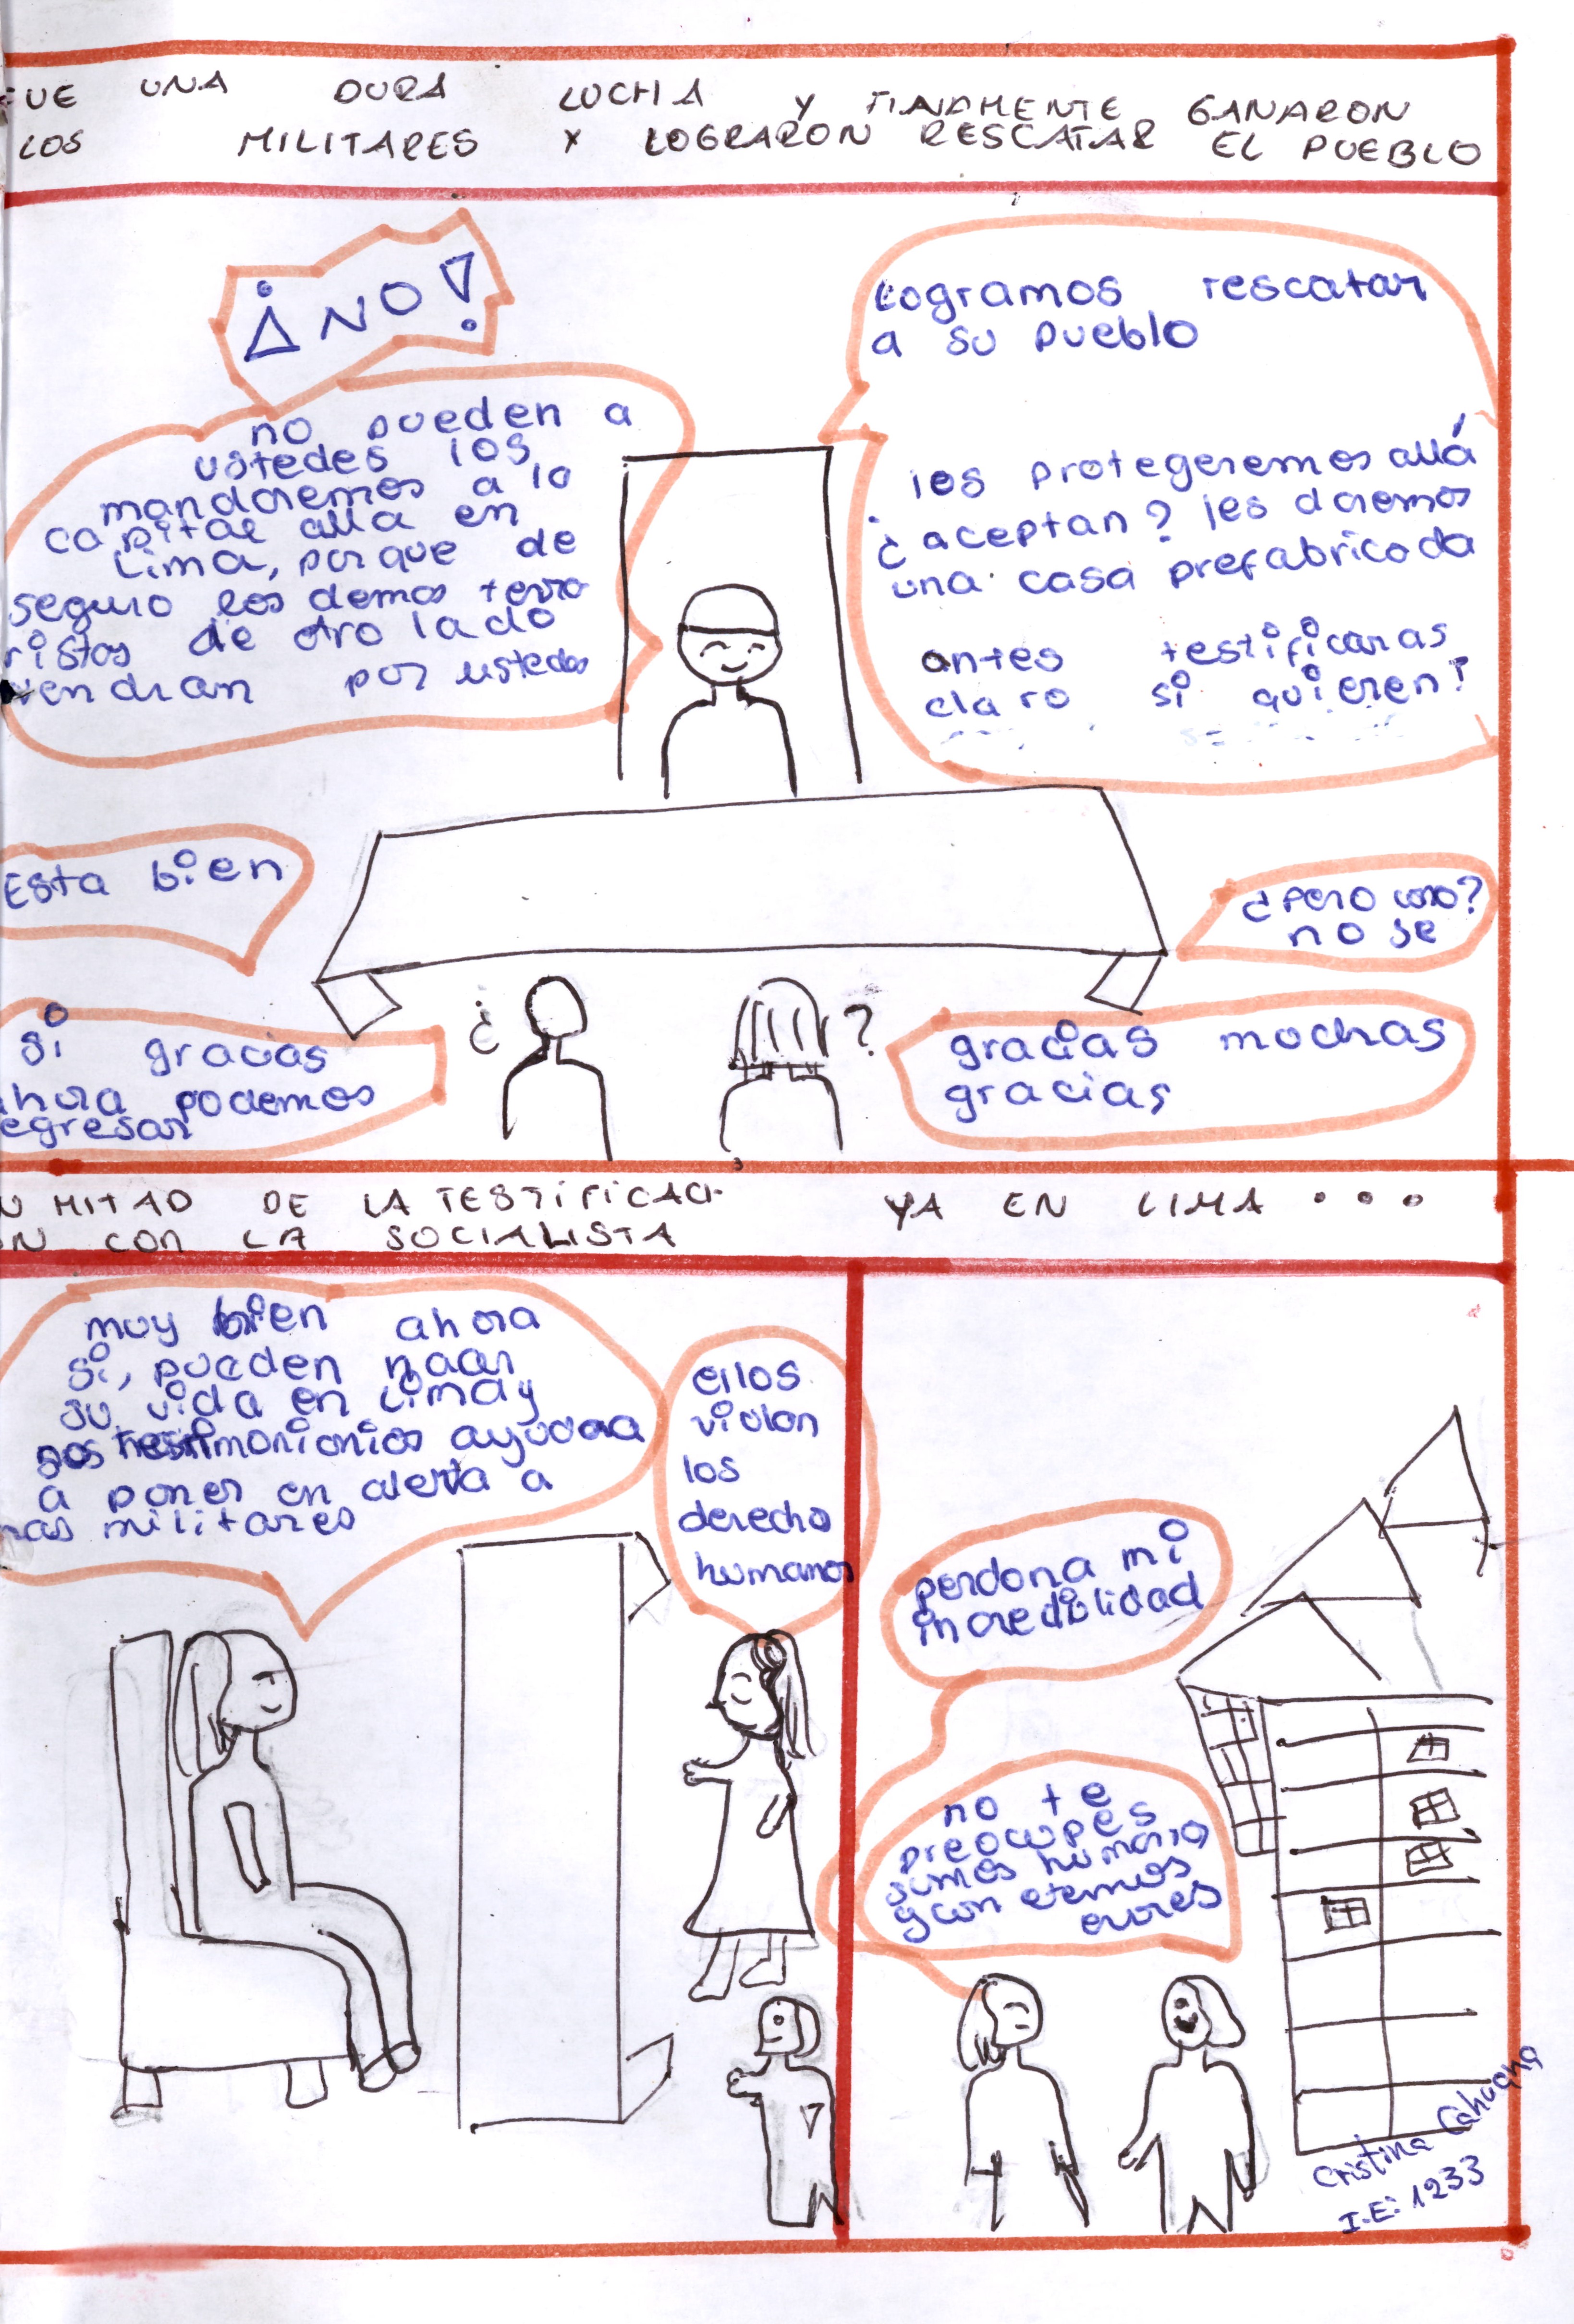 FUE UNA DURA LUCHA Y FINALMENTE GANARON
LOS MILITARES Y LOGRARON RESCATAR EL PUEBLO
¡NO!
no pueden a
ustedes los
mandaremos a la
capital alla en
Lima, porque de
seguro los demas terro
ristas de otro lado
vendran por ustedes
Logramos rescatar
a su pueblo
los protegeremos allá
¿aceptan? les daremos
una casa prefabricada
antes testificaras
claro si quieren!
Esta bien
¿pero como?
no se
si gracias
ahora podemos
egresar
¿ ?
gracias muchas
gracias
N MITAD DE LA TESTIFICACI
ON CON LA SOCIALISTA
YA EN LIMA . . .
muy bien ahora
si, pueden hacer
su vida en Lima y
sus testimonionios ayudara
a poner en alerta a
mas militares
ellos
violan
los
derecho
humanos
perdona mi
incredilidad
no te
preocupes
somos humanos
y con eternos
errores
Cristina Cahuana
I.E: 1233